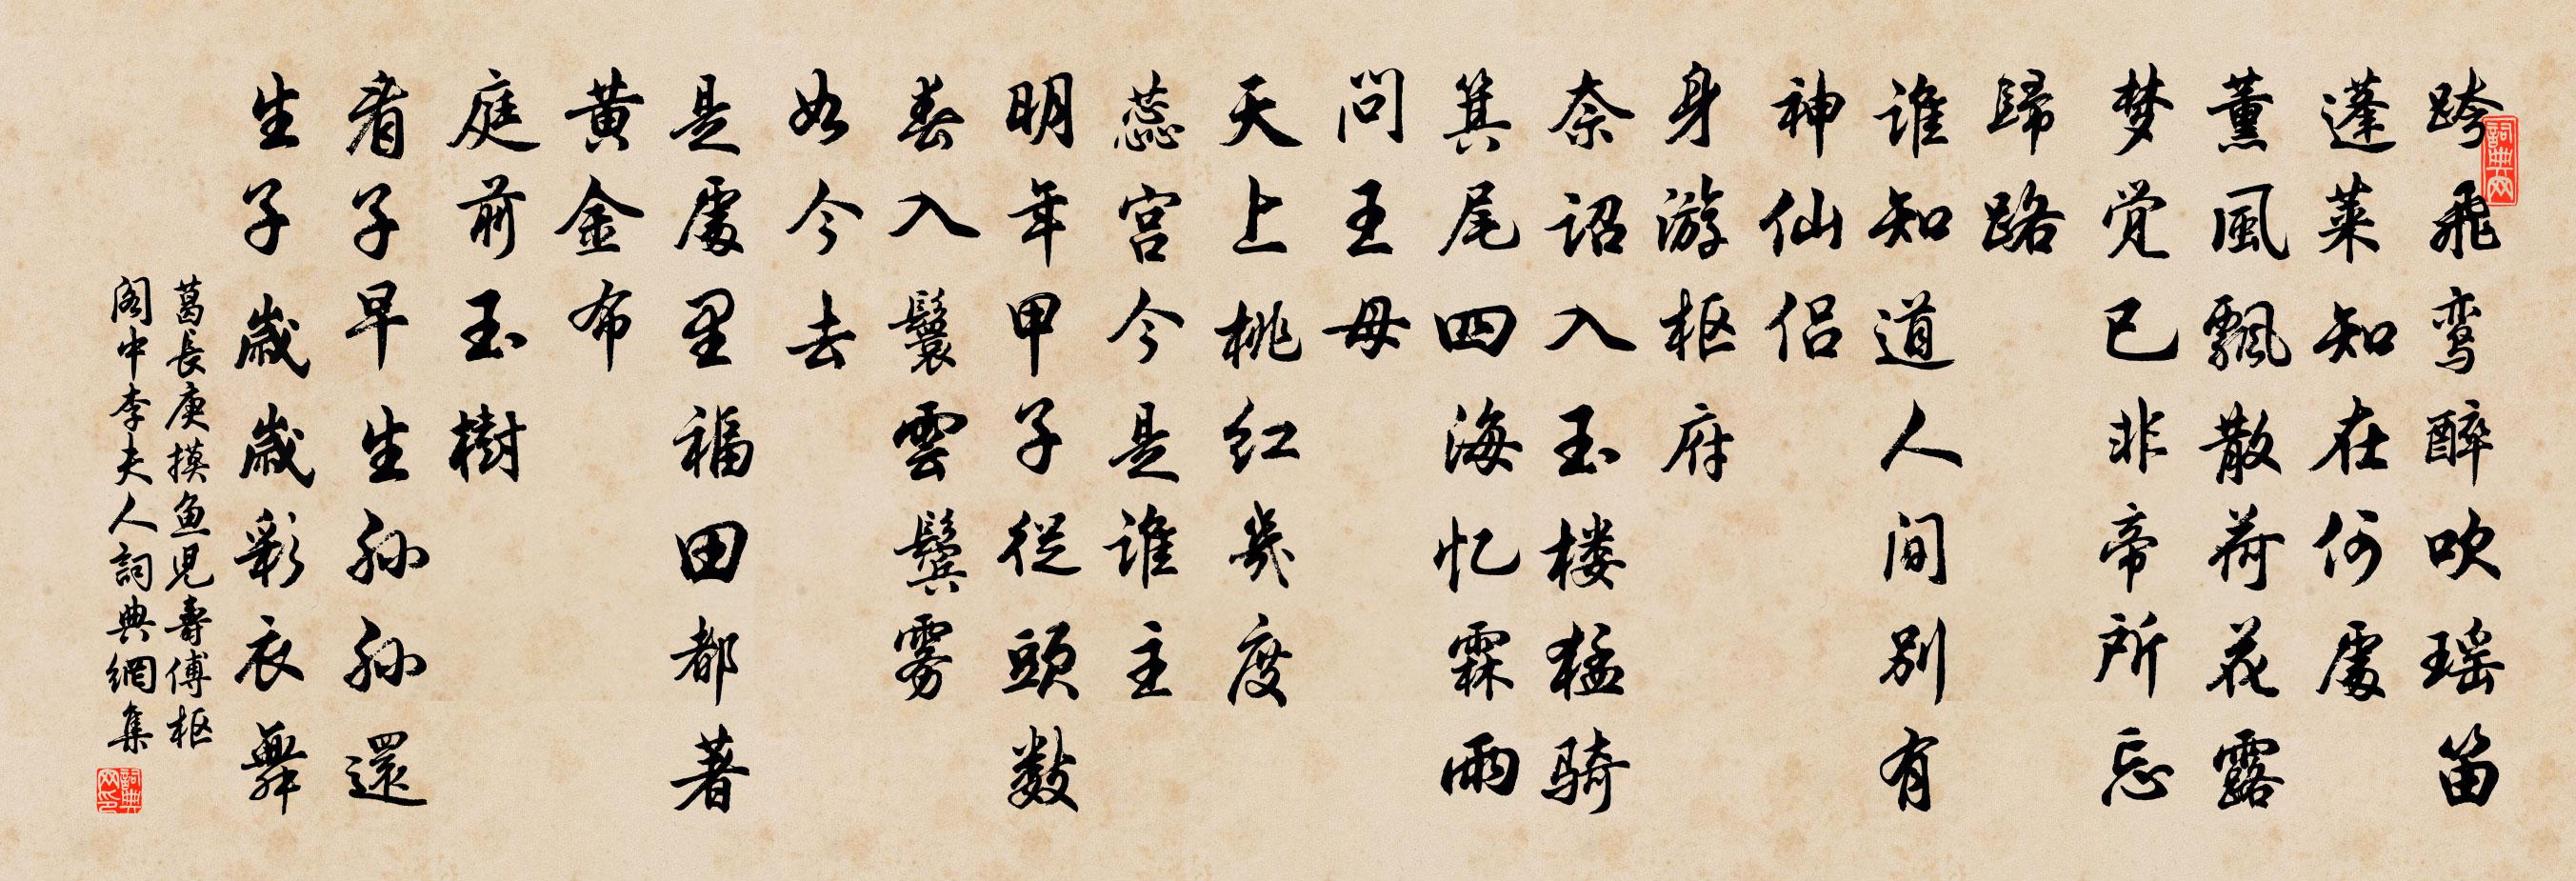 跨飛鸾醉吹瑶笛
蓬莱知在何處
薰風飄散荷花露
梦觉已非帝所忘
歸路
谁知道人间别有
神仙侣
身游枢府
奈诏入玉楼猛骑
箕尾四海忆霖雨
问王母
天上桃红幾度
蕊宫今是谁主
明年甲子從頭数
春入鬟雲鬓雾
如今去
是處里福田都著
黄金布
庭前玉樹
看子早生孙孙還
生子歲歲彩衣舞
葛長庚摸鱼児壽傅枢
阁中李夫人詞典網集
詞典网
詞典网印